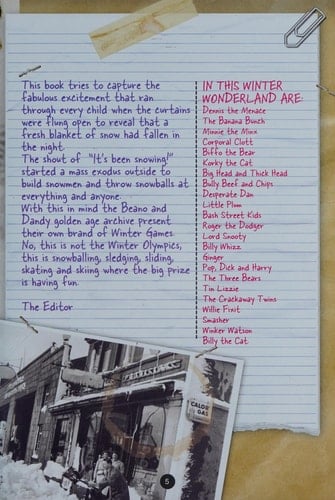 This book tries to capture the
fabulous excitement that ran
through every child when the curtains
were flung open to reveal that a
fresh blanket of snow had fallen in
the night.
The shout of "It's been snowing!"
started a mass exodus outside to
build snowmen and throw snowballs at
everything and anyone.
With this in mind the Beano and
Dandy golden age archive present
their own brand of Winter Games.
No, this is not the Winter Olympics,
this is snowballing, sledging, sliding,
skating and skiing where the big prize
is having fun.
The Editor
IN THIS WINTER
WONDERLAND ARE:
Dennis the Menace
The Banana Bunch
Minnie the Minx
Corporal Clott
Biffo the Bear
Korky the Cat
Big Head and Thick Head
Bully Beef and Chips
Desperate Dan
Little Plum
Bash Street Kids
Roger the Dodger
Lord Snooty
Billy Whizz
Ginger
Pop, Dick and Harry
The Three Bears
Tin Lizzie
The Crackaway Twins
Willie Fixit
Smasher
Winker Watson
Billy the Cat
CALOR
GAS
5